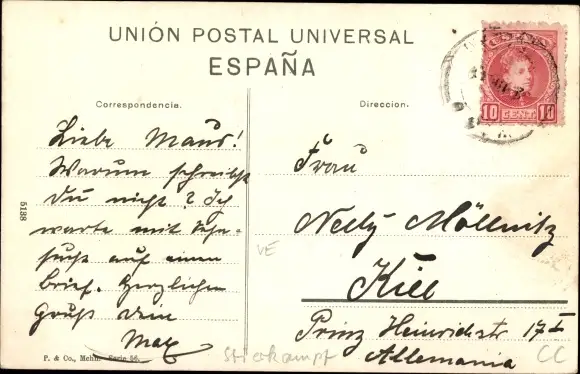 UNIÓN POSTAL UNIVERSAL
ESPAÑA
Correspondencia.
Liebe Maus!
Warum schreibst
Du nicht? Ich
warte mit Sehn-
sucht auf einen
Brief. Herzlichen
Gruß Dein
Max
Direccion.
Frau
Nelly Möllnitz
Kiel
Prinz Heinrichstr 17 I
Allemania
10 CENT. 10
5138
P. & Co., Mchn. Serie 56.
VE
Stierkampf
CC